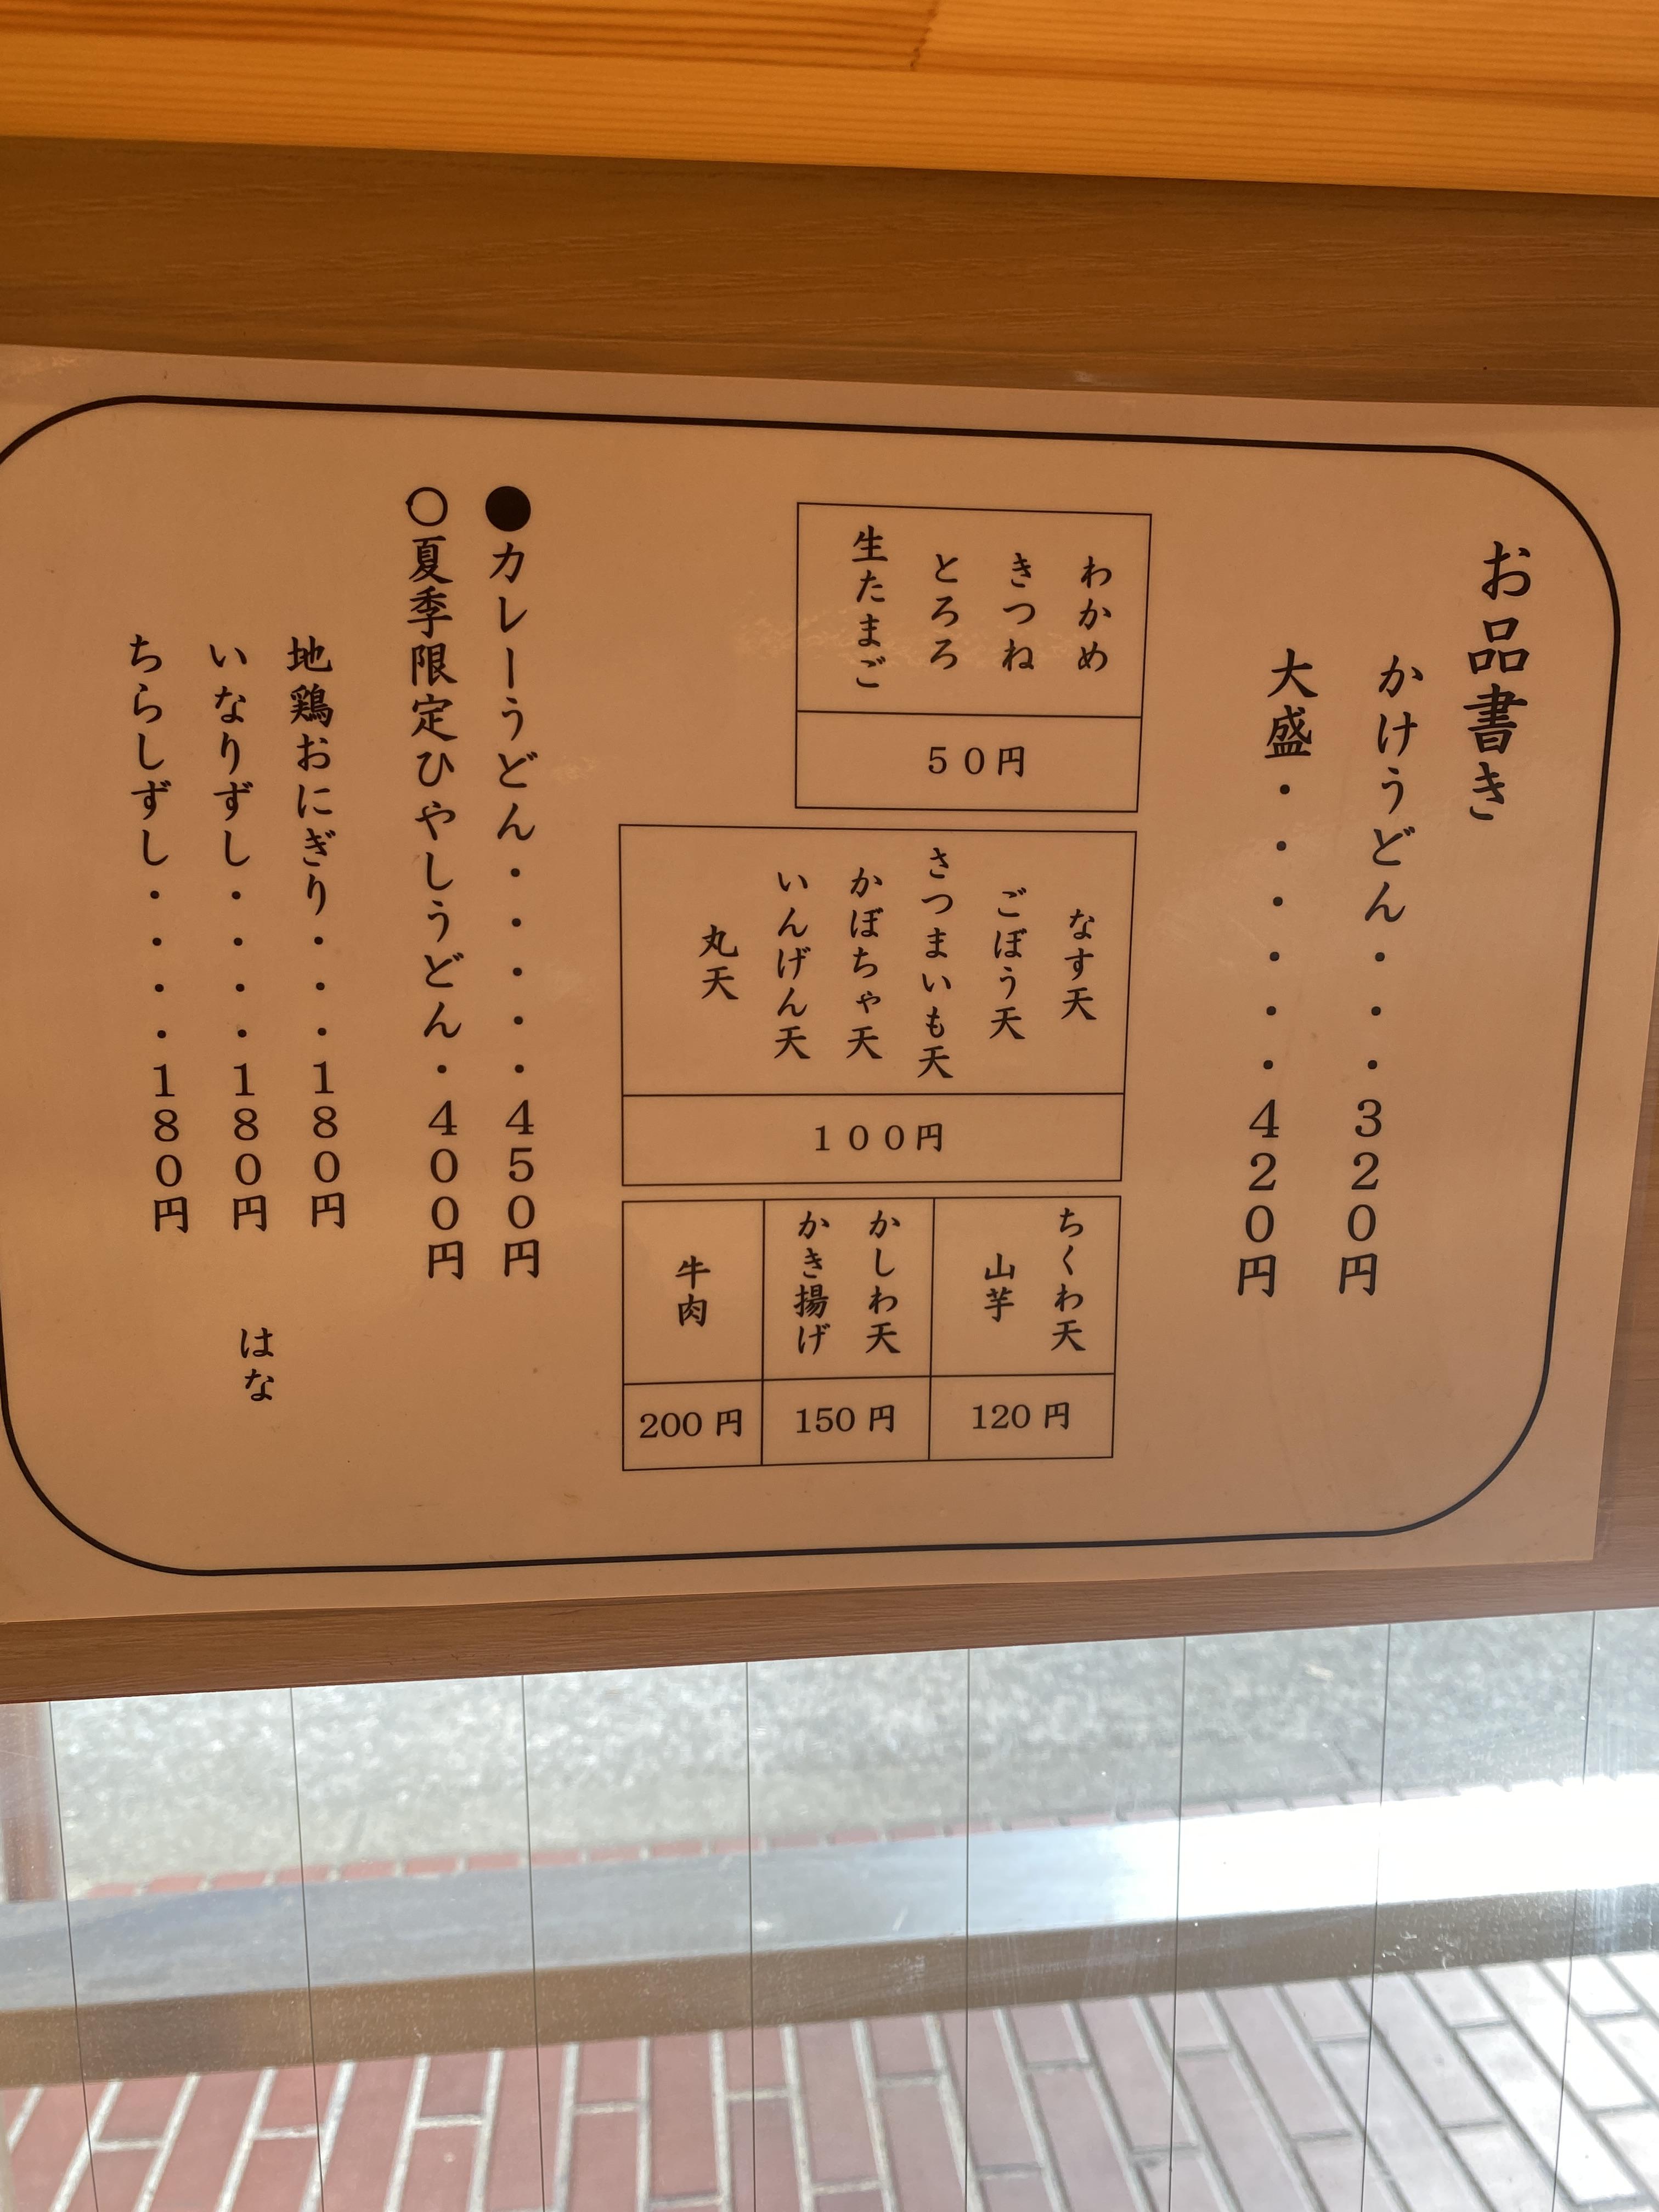 お品書き
かけうどん・・・320円
大盛・・・・・・420円
わかめ
きつね
とろろ
生たまご
50円
なす天
ごぼう天
さつまいも天
かぼちゃ天
いんげん天
丸天
100円
ちくわ天
山芋
120円
かしわ天
かき揚げ
150円
牛肉
200円
●カレーうどん・・・・・450円
○夏季限定ひやしうどん・400円
地鶏おにぎり・・・180円
いなりずし・・・・180円
ちらしずし・・・・180円
はな